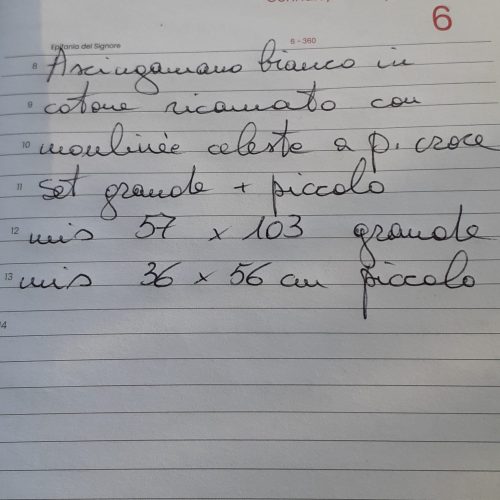 6
Epifania del Signore
6 - 360
8 Asciugamano bianco in
9 cotone ricamato con
10 moulinée celeste a p. croce
11 Set grande + piccolo
12 mis 57 x 103 grande
13 mis 36 x 56 cm piccolo
14